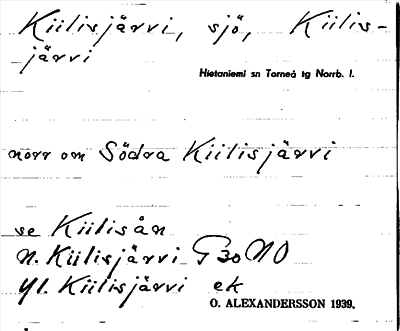 Kiilisjärvi, sjö, Kiilis-
järvi
Hietaniemi sn Torneå tg Norrb. l.
norr om Södra Kiilisjärvi
se Kiilisån
N. Kiilisjärvi G30NO
Yl. Kiilisjärvi ek
O. ALEXANDERSSON 1939.